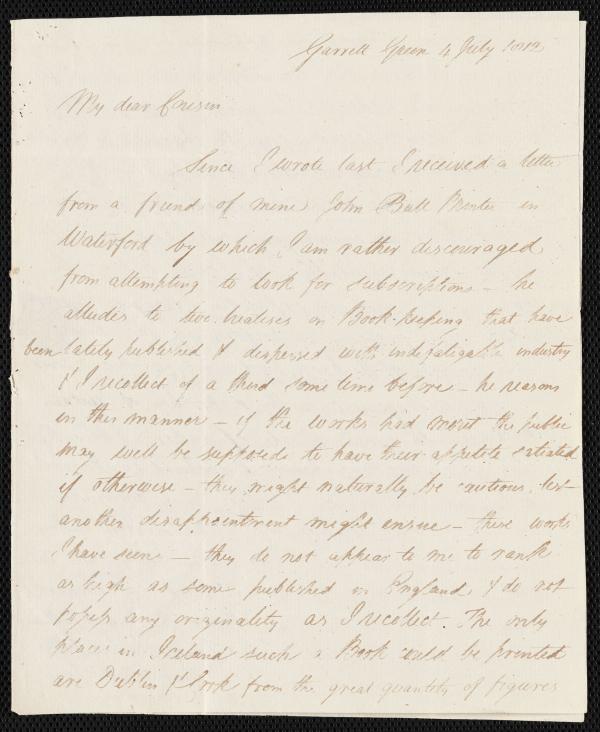 Garrell Green 4 July 1812
My dear Cousin
Since I wrote last I received a letter
from a friend of mine John Bull Printer in
Waterford by which I am rather discouraged
from attempting to look for subscriptions – he
alludes to two treatises on Book-keeping that have
been lately published & dispersed with indefatigable industry
& I recollect of a third some time before – he reasons
in this manner – if the works had merit the public
may well be supposed to have their appetite satiated
if otherwise – they might naturally be cautious lest
another disappointment might ensue – these works
I have seen – they do not appear to me to rank
as high as some published in England & do not
possess any originality as I recollect. The only
places in Ireland such a Book could be printed
are Dublin & Cork from the great quantity of figures